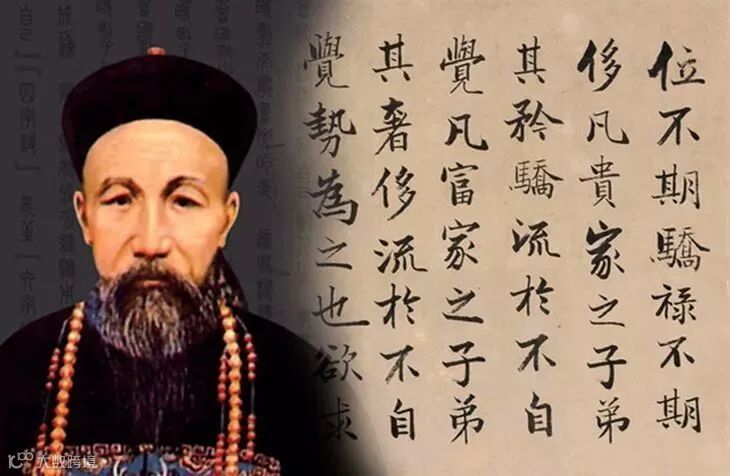 位不期驕禄不期
侈凡貴家之子弟
其矜驕流於不自
覺凡富家之子弟
其奢侈流於不自
覺勢為之也欲求
大数跨境